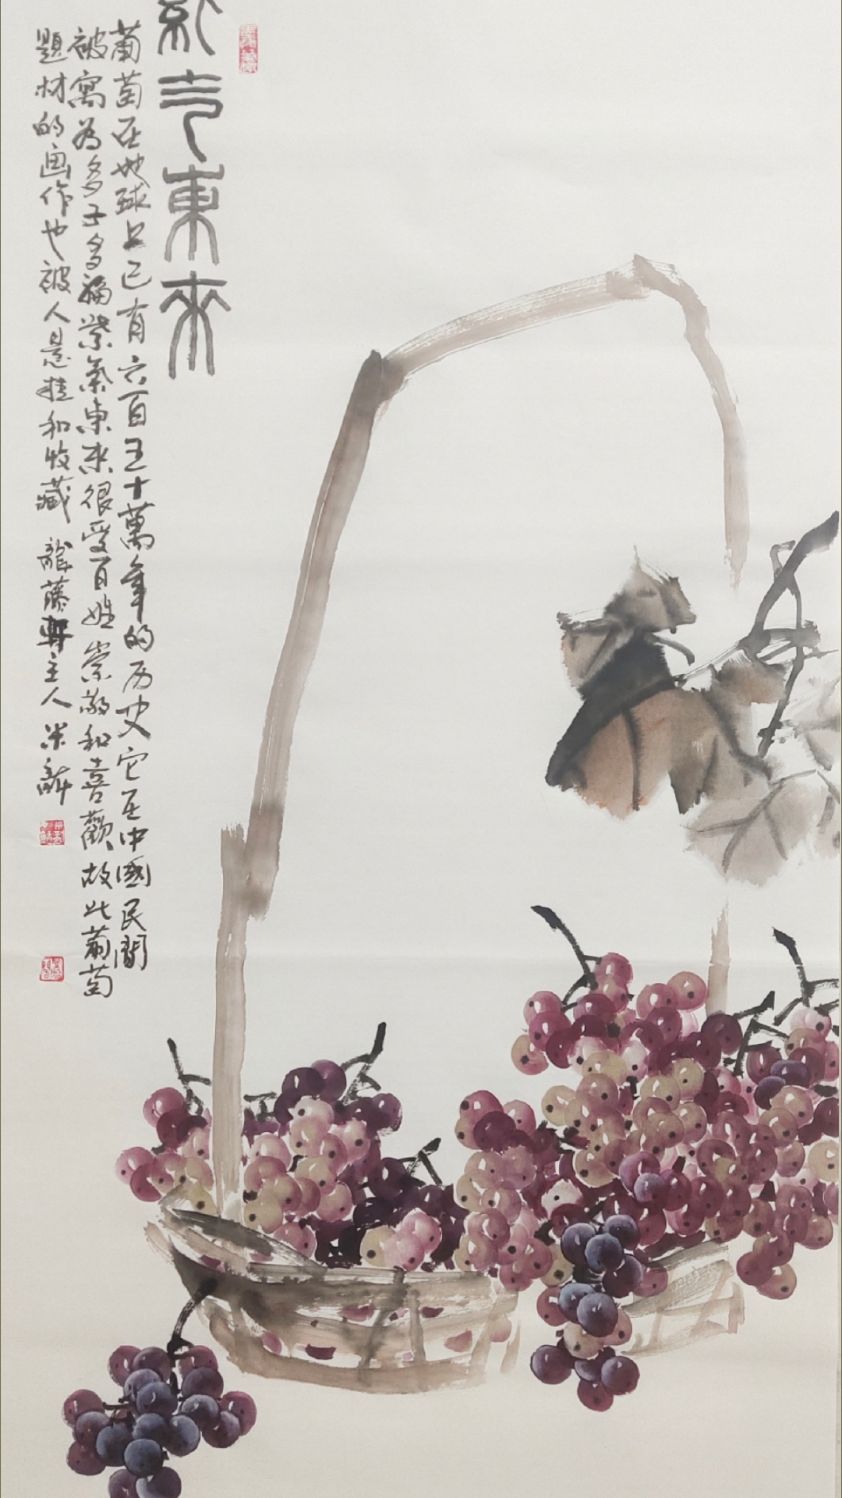 气東來
葡萄在地球上已有六百五十萬年的历史它在中國民間
被寓為多子多福紫氣東来很受百姓崇敬和喜歡故此葡萄
題材的画作也被人悬挂和收藏 龍藤軒主人 米